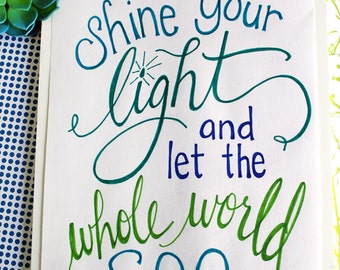 Shine your
light
and
let the
whole world
see